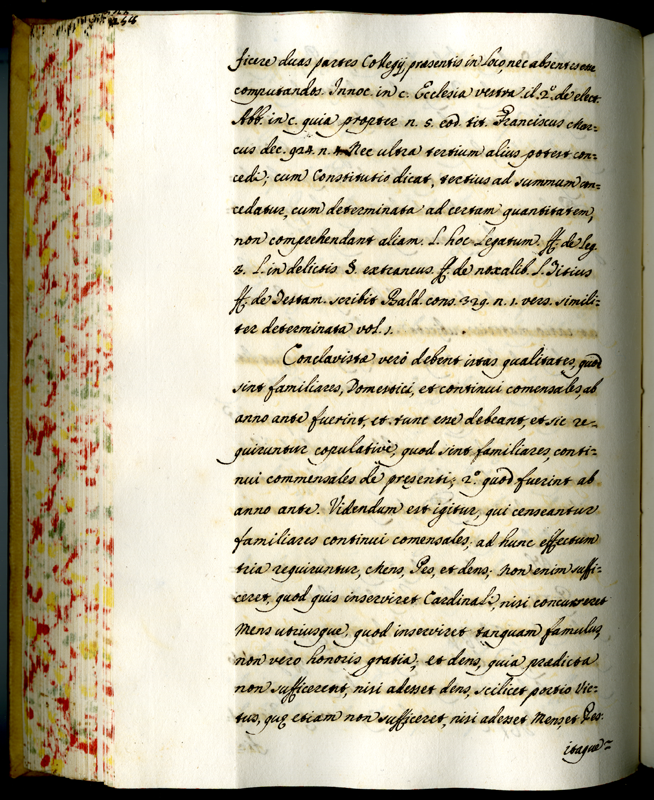 ficere duas partes Collegij, presentis in loco, nec absentes esse
computandos. Innoc. in c. Ecclesia vestra il 2.º de elect.
Abb. in c. quia propter n. 5. eod. tit. Franciscus Mar-
cus dec. 924. n. 4. Nec ultra tertium alius potest con-
cedi; cum Constitutio dicat, tertius ad summum con-
cedatur, cum determinata ad certam quantitatem,
non comprehendant aliam. L. hoc Legatum. ff. de Leg.
3. L. in delictis §. extraneus ff. de noxalib. L. Titius
ff. de Testam. scribit Bald. cons. 329. n. 1. vers. simili-
ter determinata vol. 1.
Conclavistæ verò debent istas qualitates, quod
sint familiares, Domestici, et continui comensales, ab
anno ante fuerint, et tunc esse debeant, et sic re-
quiruntur copulativè, quod sint familiares, conti-
nui commensales de presenti; 2.º quod fuerint ab
anno ante. Videndum est igitur, qui censeantur
familiares continui comensales, ad hunc effectum
tria requiruntur, Mens, Pes, et dens; non enim suffi-
ceret, quod quis inserviret Cardinali, nisi concurreret
Mens utriusque, quod inserviret tanquam famulus,
non vero honoris gratia, et dens, quia prædicta
non sufficerent, nisi adesset dens, scilicet portio vic-
tus, quę etiam non sufficeret, nisi adesset Mens, et Pes.
itaque